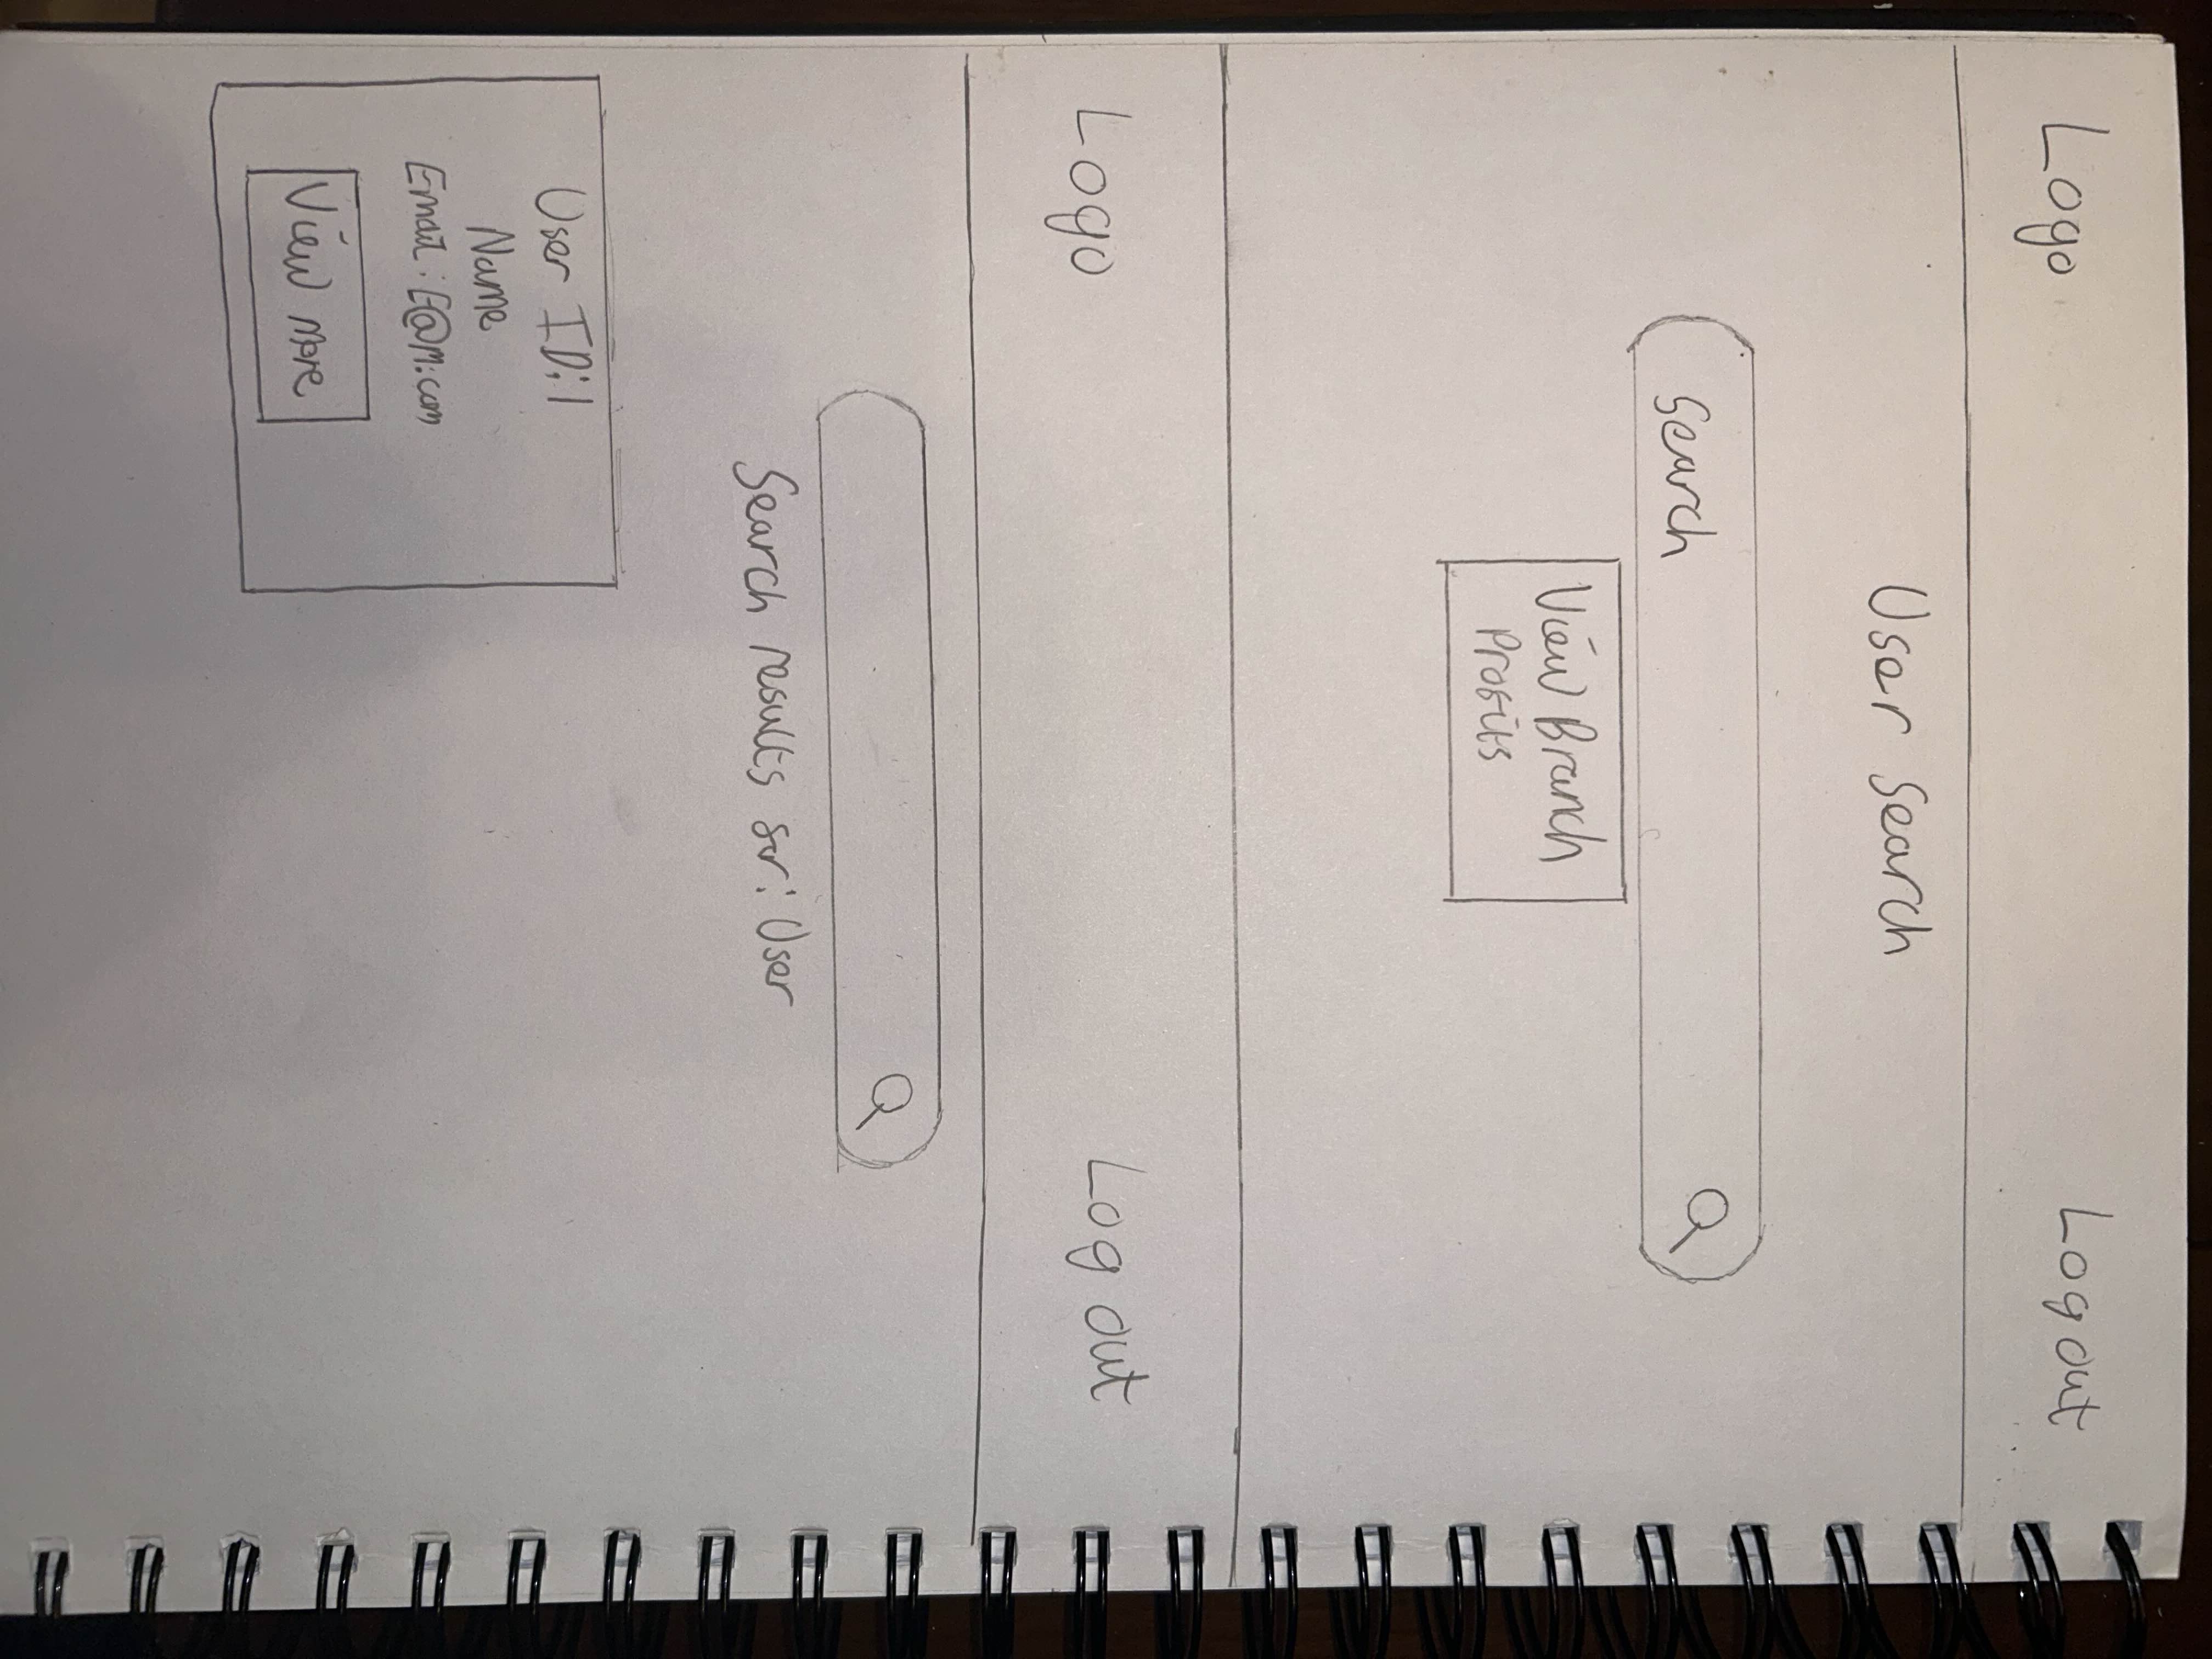 Logo
Log out
User Search
Search
View Branch
Profits
Logo
Log out
Search results for: User
User ID: 1
Name
Email: E@M.com
View More